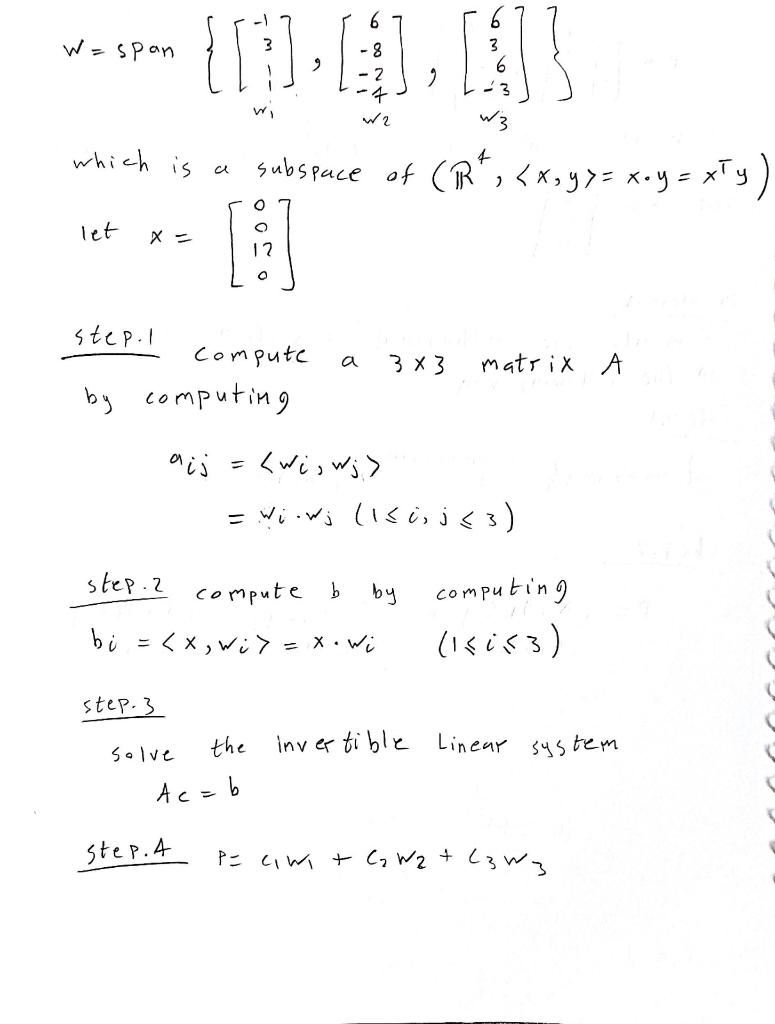 W = span { [ -1 3 1 1 ] , [ 6 -8 -2 -4 ] , [ 6 3 6 -3 ] }
w1 w2 w3
which is a subspace of (ℝ^4, <x,y> = x·y = x^T y)
let x = [ 0 0 12 0 ]
step.1 compute a 3x3 matrix A
by computing
aij = <wi, wj>
= wi·wj (1≤i, j≤3)
step.2 compute b by computing
bi = <x, wi> = x·wi (1≤i≤3)
step.3
solve the invertible Linear system
Ac = b
step.4 P = c1w1 + c2w2 + c3w3